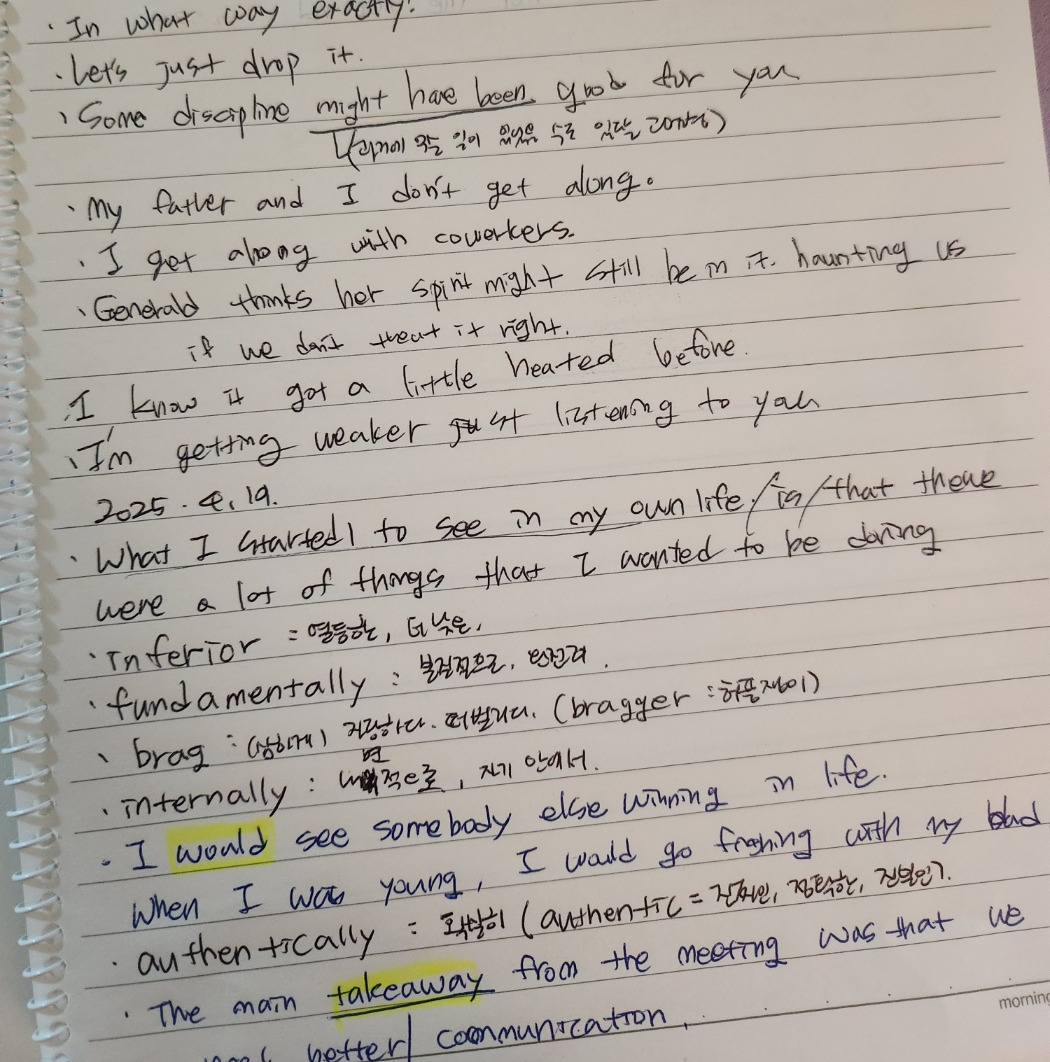 · In what way exactly?
· Let's just drop it.
· Some discipline might have been good for you
(과거에 했을 일이
· My father and I don't get along.
· I get along with coworkers.
· Generald thinks her spirit might still be in it. haunting us
if we don't threat it right.
· I know it got a little heated before.
· I'm getting weaker just listening to you
2025. 4. 19.
· What I started to see in my own life / is / that there
were a lot of things that I wanted to be doing
· inferior : 열등한, 더 낮은,
· fundamentally : 본질적으로, 완전히.
· brag : (심하게) 자랑하다. 떠벌리다. (bragger : 허풍쟁이)
· internally : 내면적으로, 자기 안에서.
· I would see somebody else winning in life.
When I was young, I would go fishing with my dad
· authentically : 확실히 (authentic = 진짜인, 정확한,
· The main takeaway from the meeting was that we
better communication.
morning